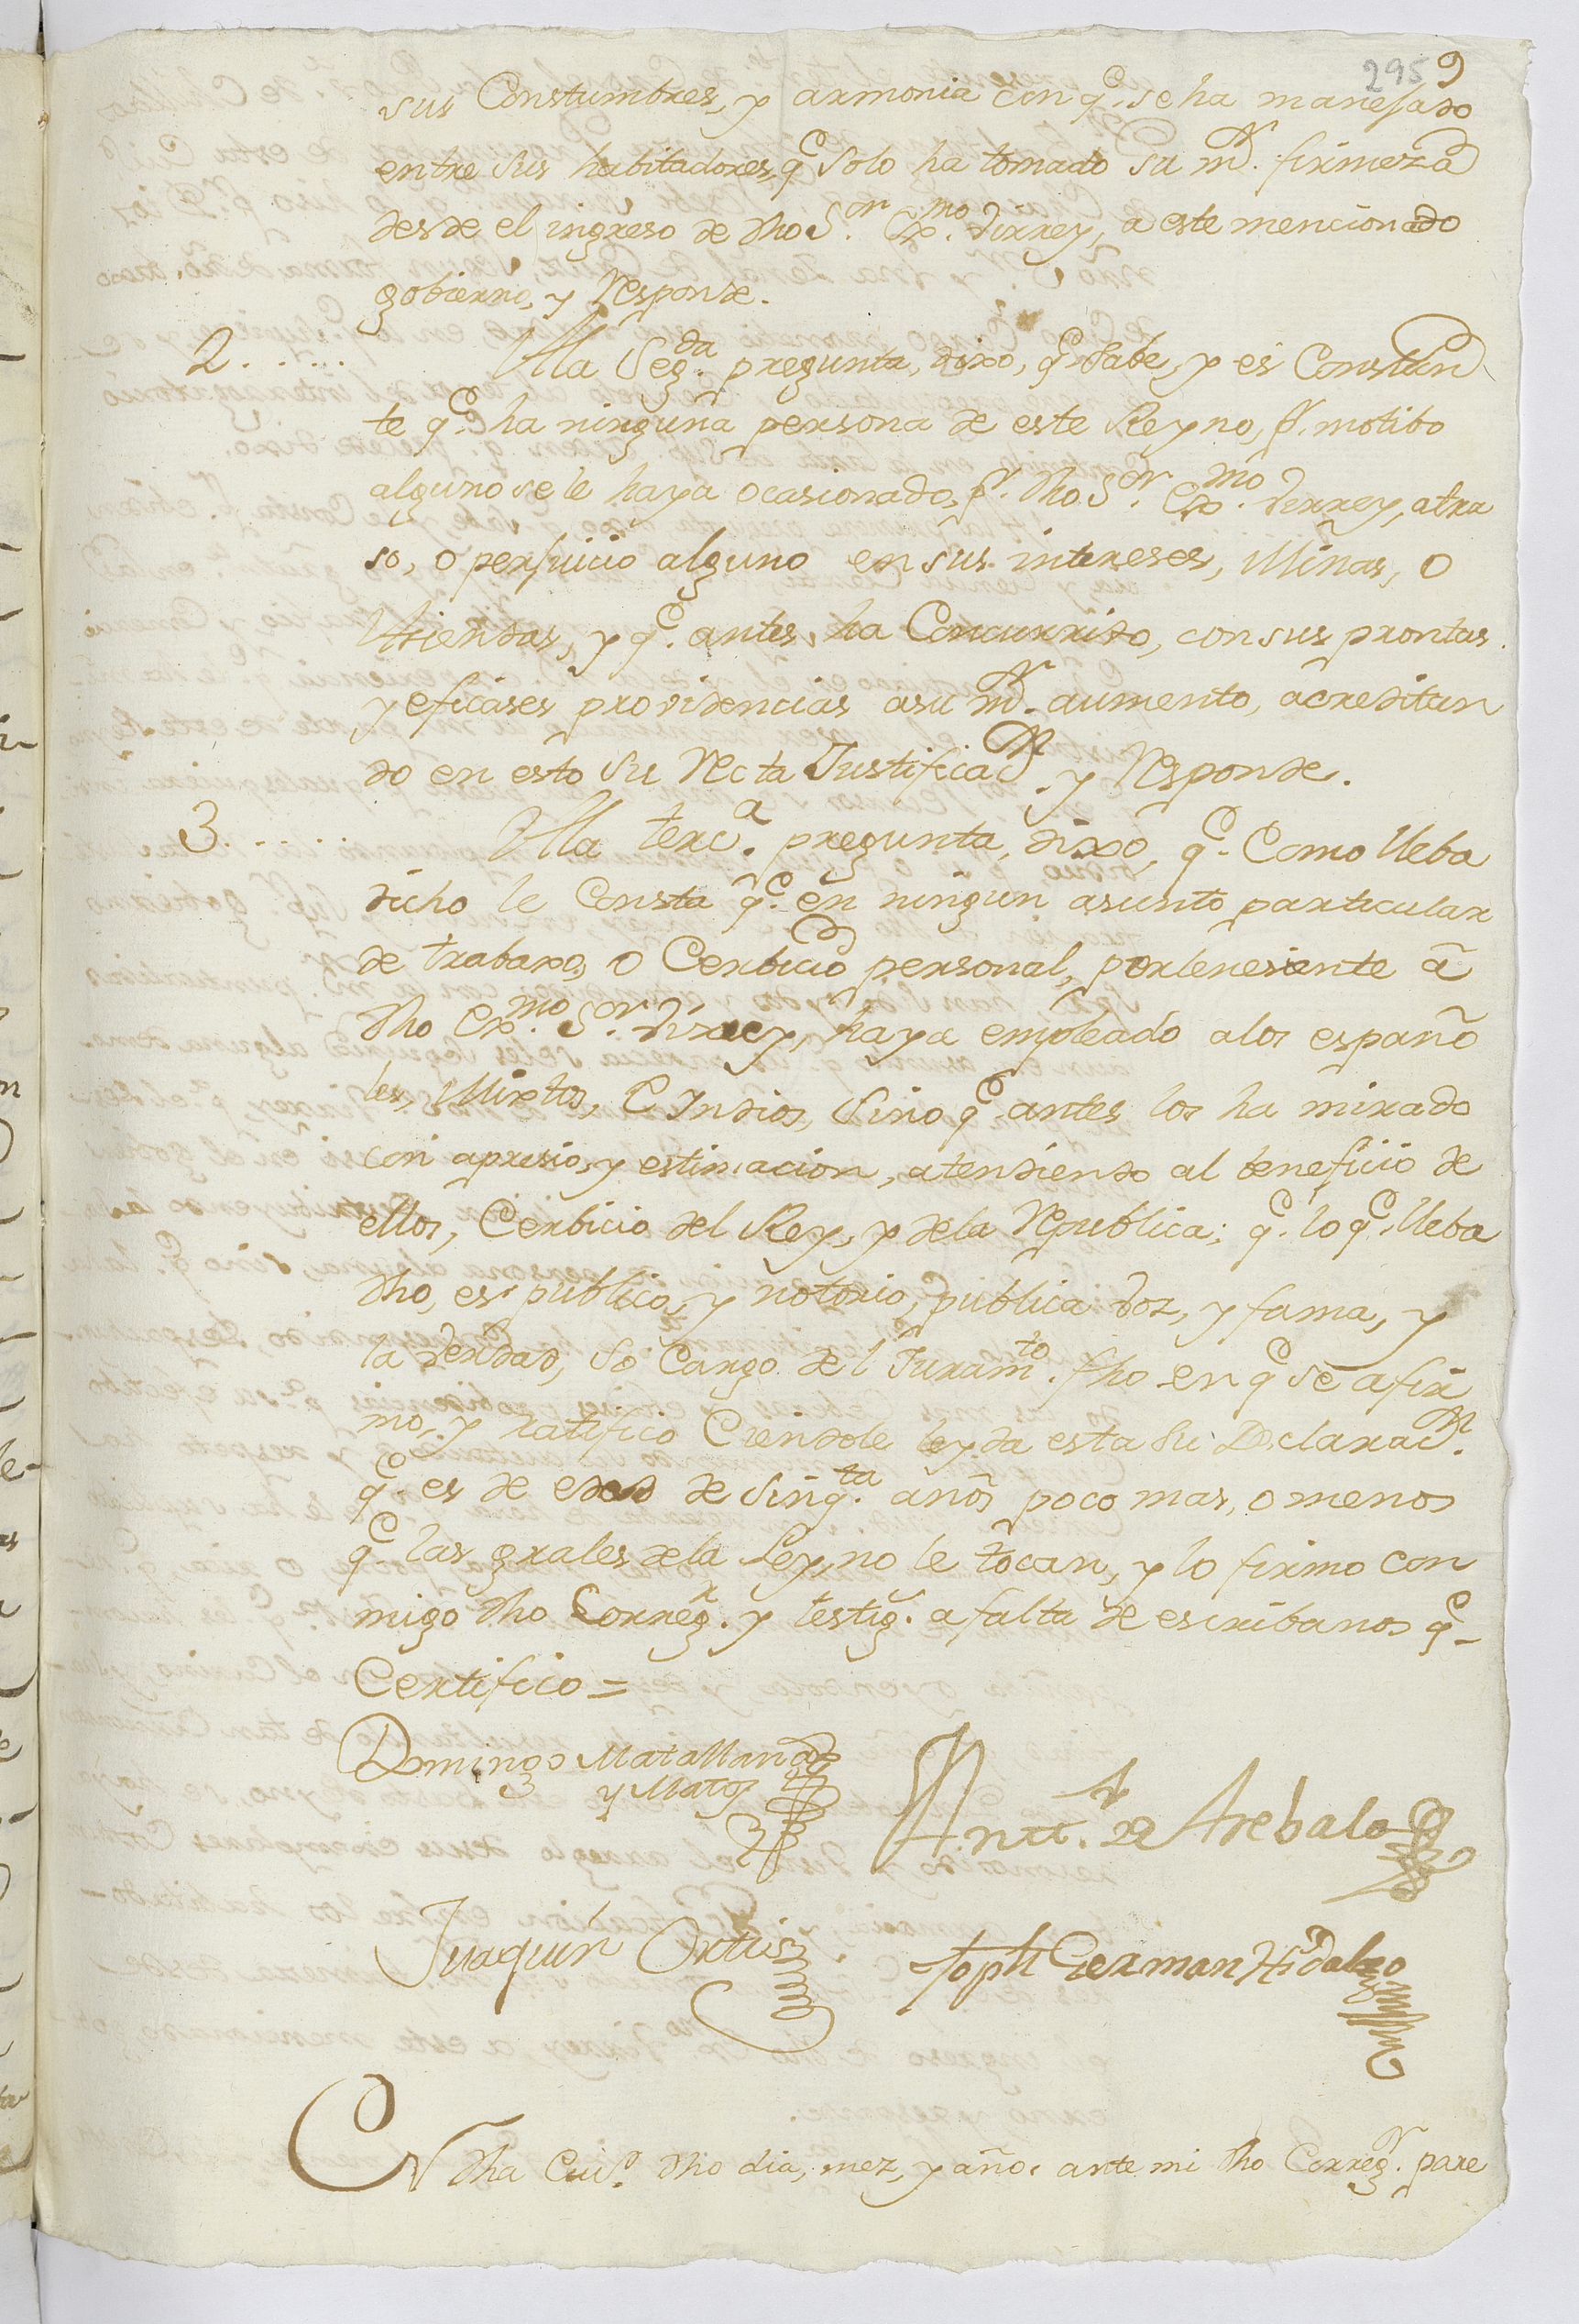 295 9
sus Constumbres, y armonia con q.e se ha manejado
entre sus habitadores, q.e solo ha tomado su m.r firmeza
desde el ingreso de dho S.or Ex.mo Virrey, a este mencionado
gobierno, y Responde.
2..... A la Seg.da pregunta, dixo, q.e sabe, y es Constan
te q.e ha ninguna persona de este Reyno, p.r motibo
alguno se le haya ocasionado, p.r dho S.or Ex.mo Virrey, atra
so, o perjuicio alguno en sus intereses, Minas, o
Haciendas, y q.e antes, ha Concurrido, con sus prontas
y eficases providencias a su m.r aumento, acreditan
do en esto su Recta Justificac.n y Responde.
3..... A la terc.a pregunta, dixo, q.e Como lleba
dicho le Consta q.e en ningun asunto particular
de trabaxo, o Cerbicio personal, perteneciente â
dho Ex.mo S.or Virrey, haya empleado a los españo
les, Mixtos, e Indios, Sino q.e antes los ha mirado
con apresio, y estimacion, atendiendo al beneficio de
ellos, Cerbicio del Rey, y de la Republica; q.e lo q.e lleba
dho, es publico, y notorio, publica voz, y fama, y
la verdad, so Cargo del Juram.to fho en q.e se afir
mo, y ratifico Ciendole leyda esta su Declarac.n
q.e es de edad de Sinq.ta años poco mas, o menos
q.e las grales de la Ley, no le tocan, y lo firmo con
migo dho Correg.r y testig.s a falta de escribanos q.e
Certifico =
Domingo Matallana
y Matos
Ant.o de Arebalo
Juaquin Ortis
Joph German Hidalgo
En dha Ciu.d dho dia, mez, y año, ante mi dho Correg.r pare